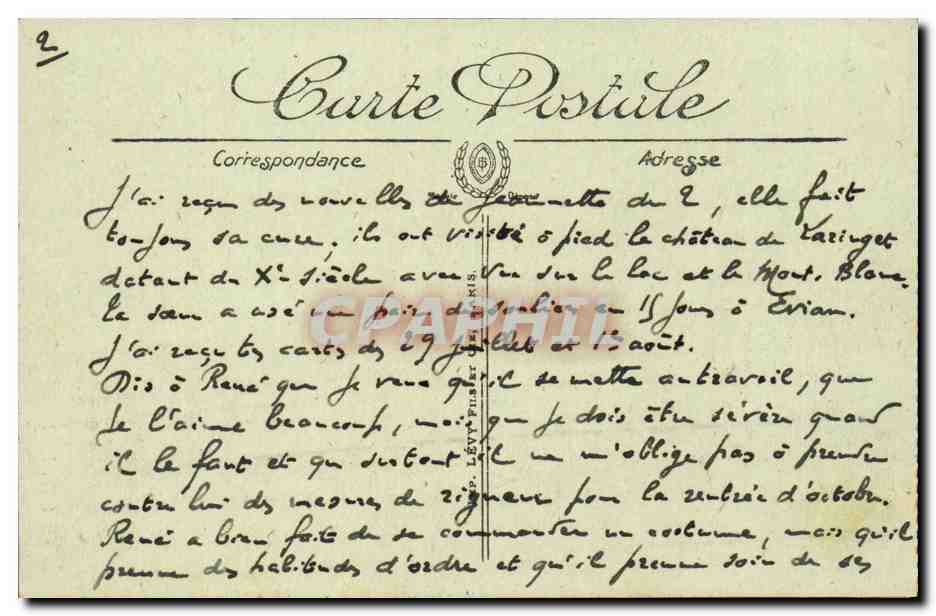 2
Carte Postale
Correspondance
Adresse
J'ai reçu des nouvelles de Jeannette du 2, elle fait
toujours sa cure, ils ont visité à pied le château de Laringet
datant du Xe siècle avec vue sur le lac et le Mont. Blanc.
Ta sœur a usé une paire de souliers en 15 jours à Evian.
J'ai reçu tes cartes des 29 juillet et 1er août.
Dis à René que je veux qu'il se mette au travail, que
je l'aime beaucoup, mais que je dois être sévère quand
il le faut et que surtout il ne m'oblige pas à prendre
contre lui des mesures de rigueur pour la rentrée d'octobre.
René a bien fait de se commander un costume, mais qu'il
prenne des habitudes d'ordre et qu'il prenne soin de ses
IMP. LÉVY FILS ET CIE, PARIS.
CPAPHIL